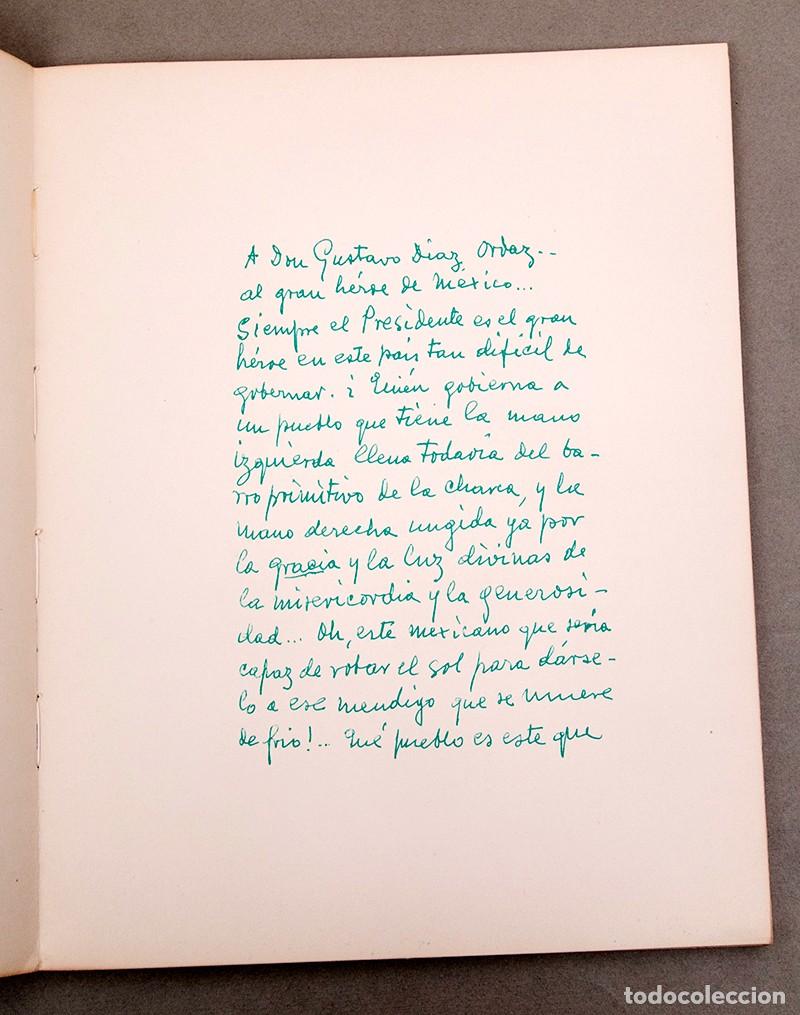 A Don Gustavo Díaz Ordaz..
al gran héroe de México...
Siempre el Presidente es el gran
héroe en este país tan dificil de
gobernar. ¿Quién gobierna a
un pueblo que tiene la mano
izquierda llena todavía del ba-
rro primitivo de la charca, y la
mano derecha ungida ya por
la gracia y la luz divinas de
la misericordia y la generosi-
dad... Oh, este mexicano que sería
capaz de robar el sol para dárse-
lo a ese mendigo que se muere
de frio!.. Qué pueblo es este que
todocoleccion